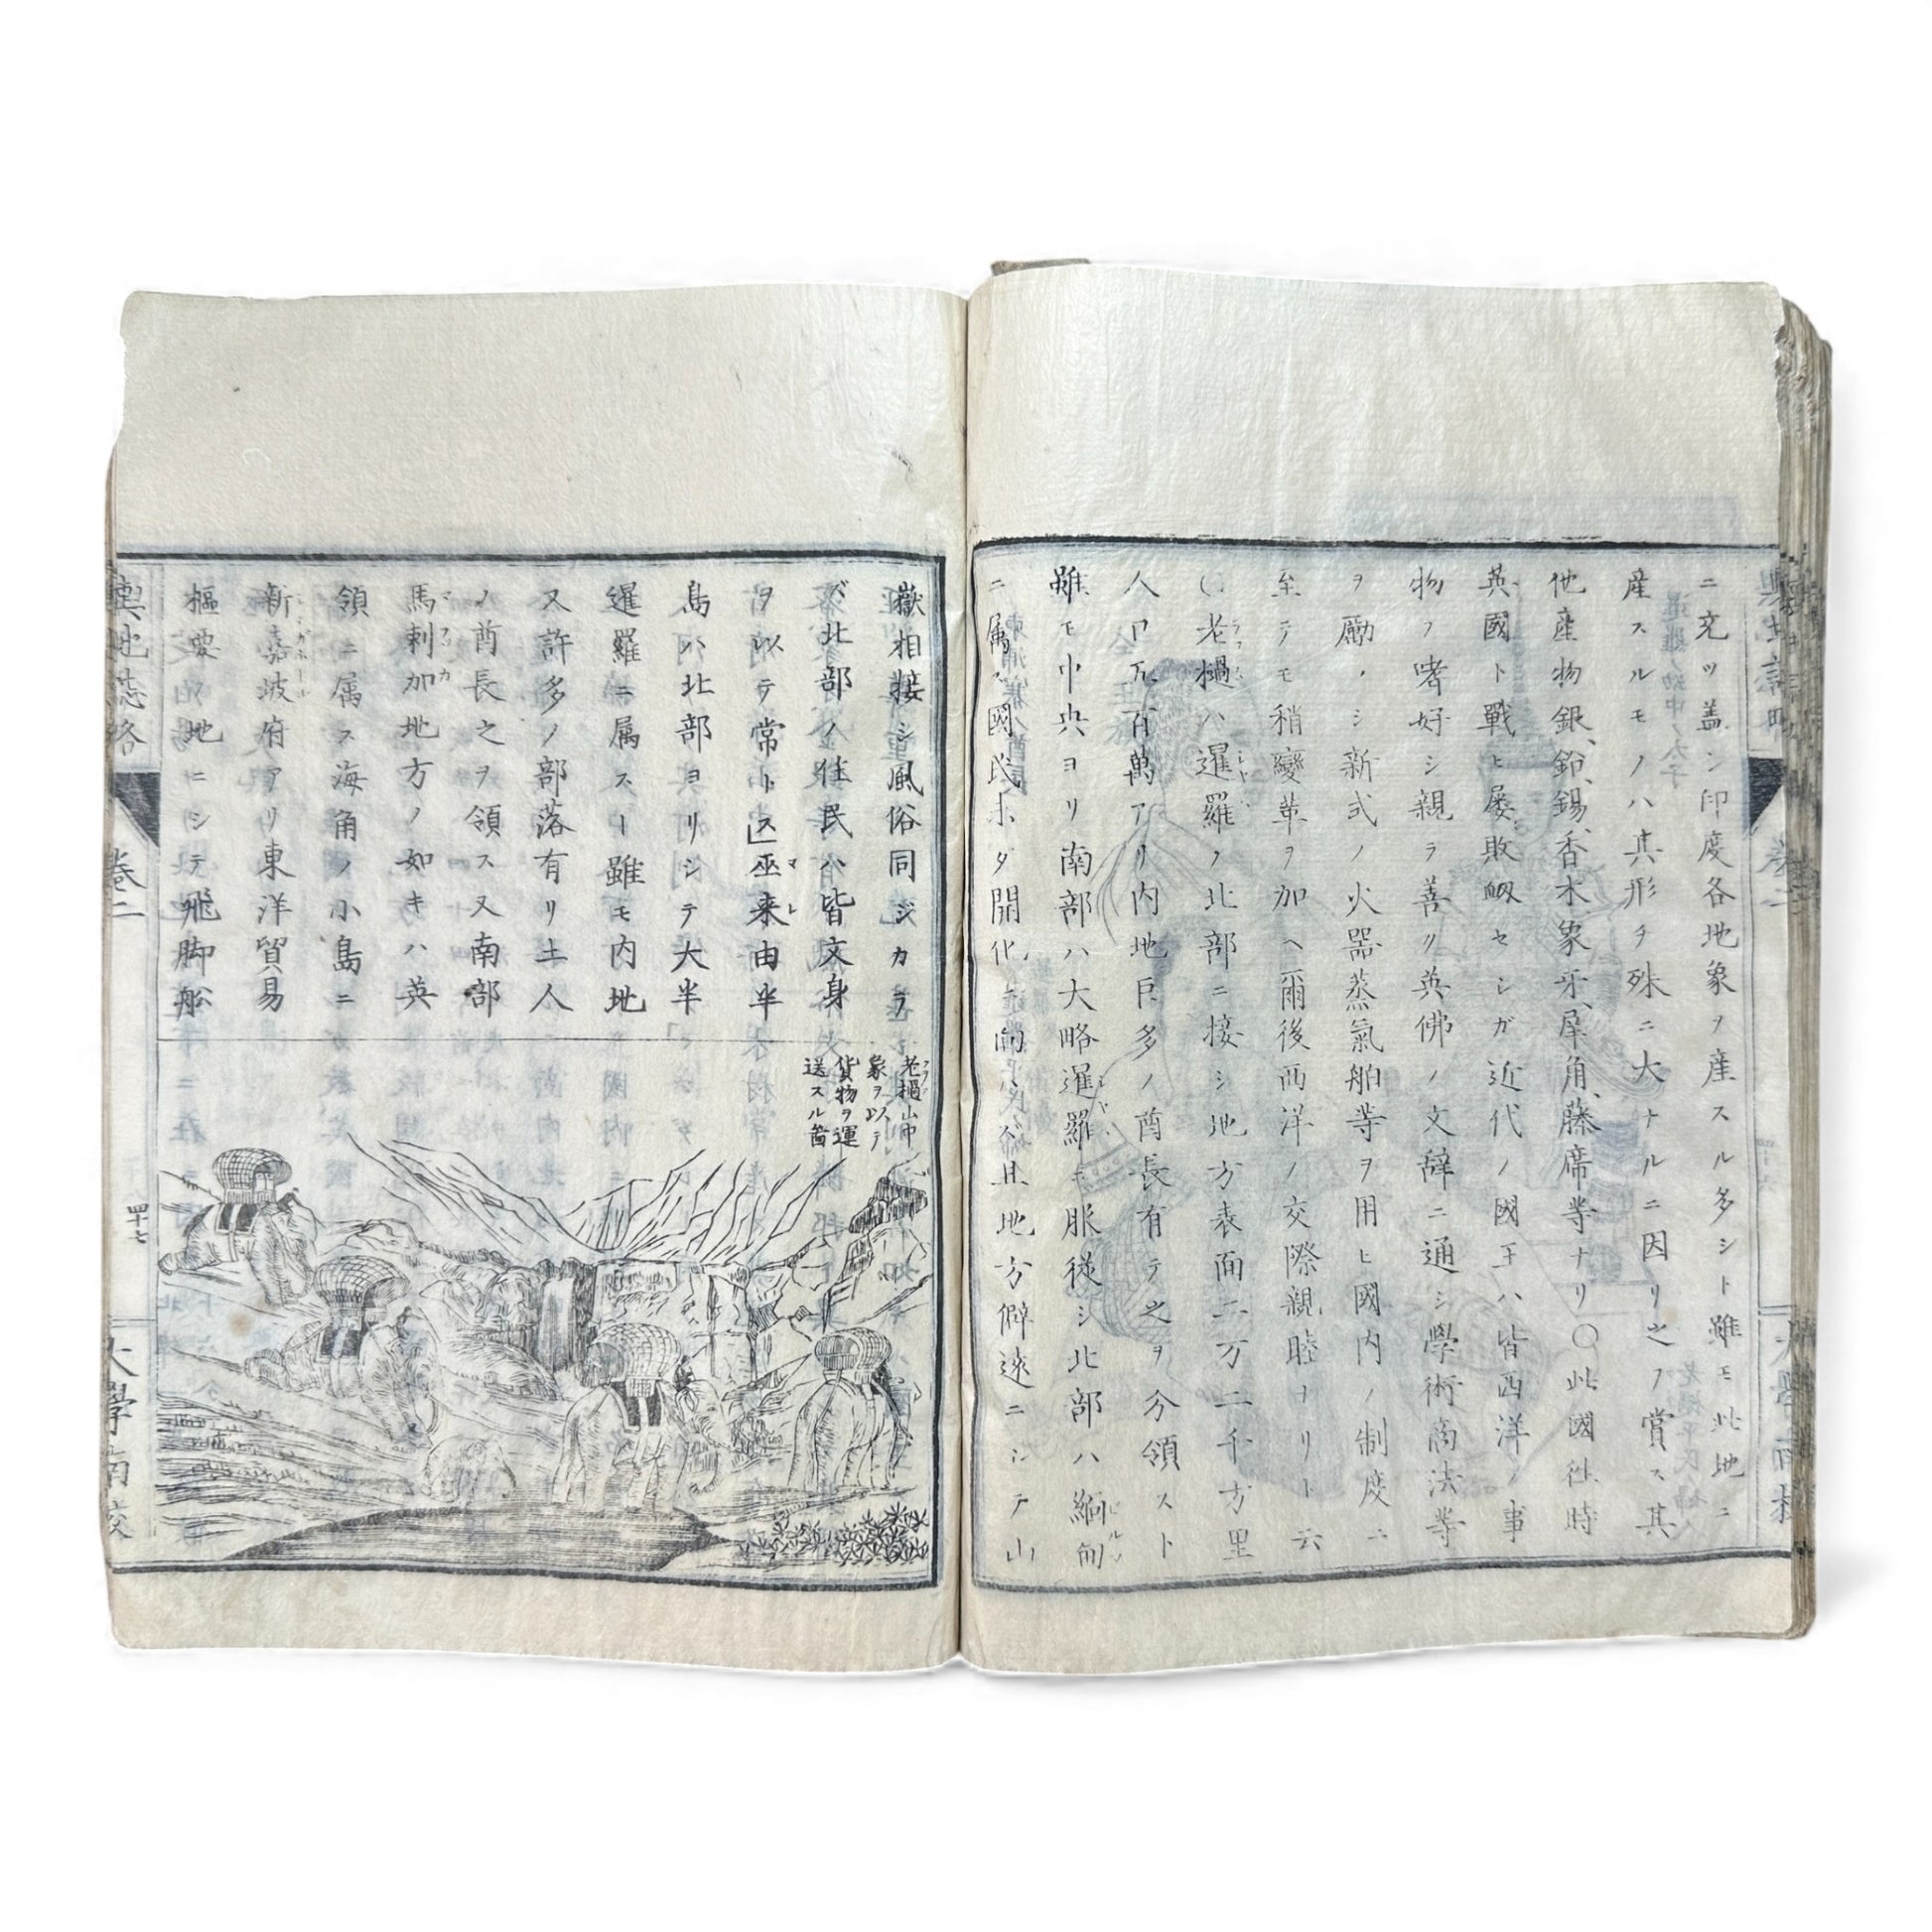 ニ充ツ蓋シ印度各地象ヲ産スル多シト雖モ此地ニ
産スルモノハ其形チ殊ニ大ナルニ因リ之ヲ賞ス其
他産物銀、鉛、錫、香木、象牙、犀角、藤席等ナリ〇此國往時
英國ト戰ヒ屡敗衂セシガ近代ノ國王ハ皆西洋ノ事
物ヲ嗜好シ親ラ善ク英佛ノ文辞ニ通シ學術商法等
ヲ勵ノシ新式ノ火器蒸氣舶等ヲ用ヒ國内ノ制度ニ
至テモ稍變革ヲ加ヘ爾後西洋ノ交際親睦ナリト云
老檛ハ暹羅ノ北部ニ接シ地方表面二万二千方里
人口五百萬アリ内地巨多ノ酋長有テ之ヲ分領スト
雖モ中央ヨリ南部ハ大略暹羅ニ服従シ北部ハ緬甸
ニ属ス國民未ダ開化ニ向ハズ且地方僻遠ニシテ山
嶽相接シ風俗同ジカラ
ズ北部ノ住民ハ皆文身
ヲ以テ常トス」巫来由半
島ハ北部ヨリシテ大半
暹羅ニ属スト雖モ内地
又許多ノ部落有リ土人
ノ酋長之ヲ領ス又南部
馬剌加地方ノ如キハ英
領ニ属ス海角ノ小島ニ
新嘉坡府アリ東洋貿易
樞要ノ地ニシテ飛脚舩
老檛山中
象ヲ以テ
貨物ヲ運
送スル啚
輿地誌略
卷二
四十七
大學南校